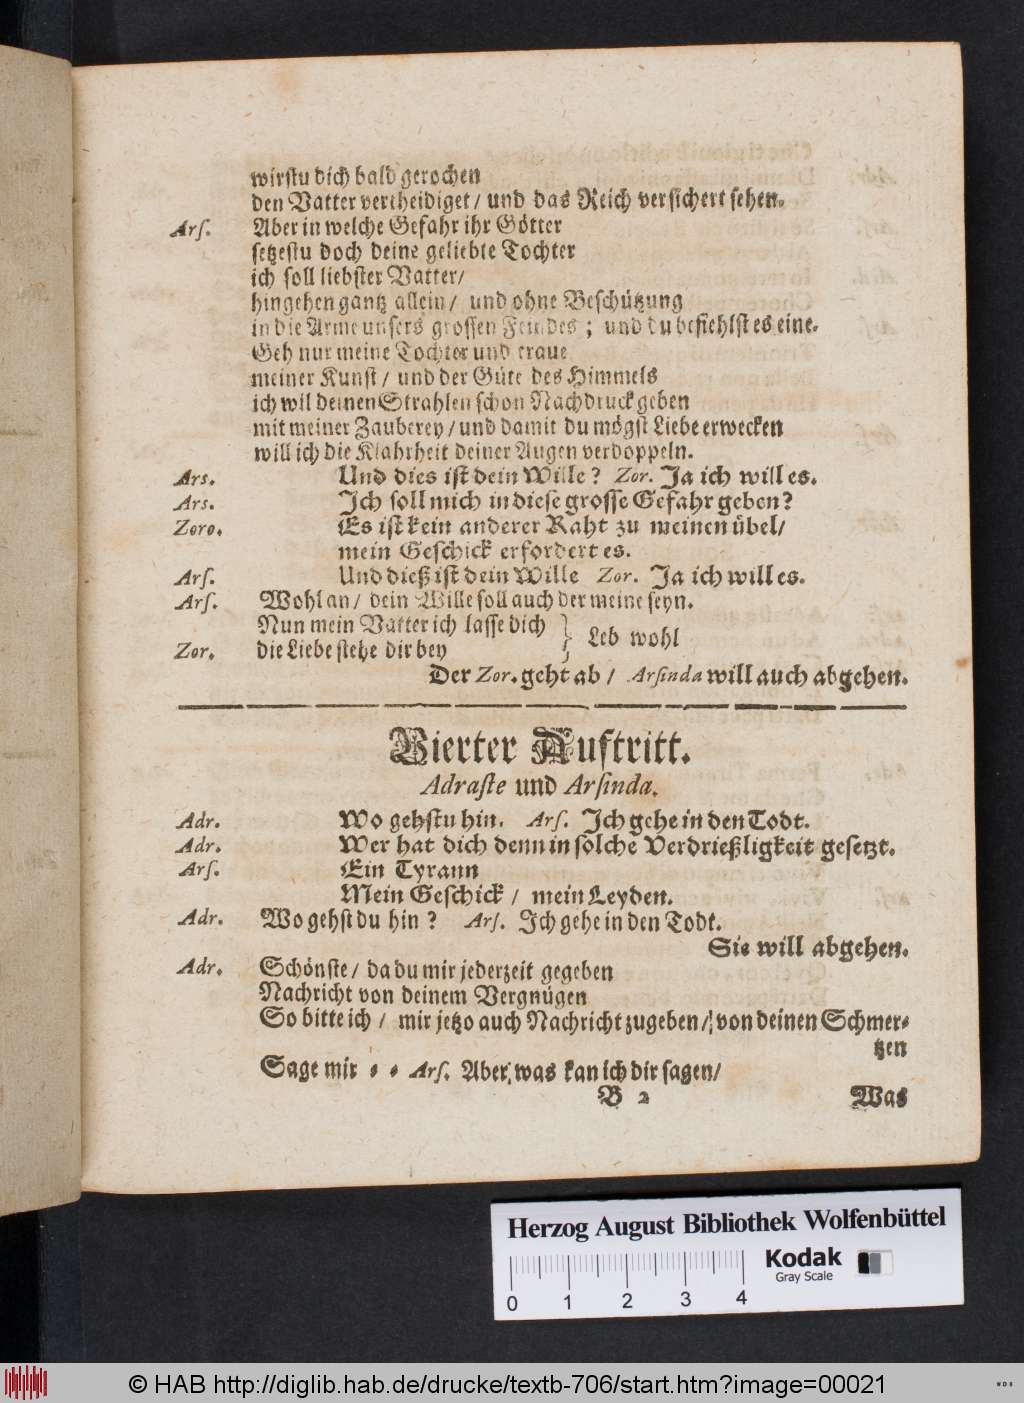 wirstu dich bald gerochen
den Vatter vertheidiget / und das Reich versichert sehen.
Arſ. Aber in welche Gefahr ihr Götter
setzestu doch deine geliebte Tochter
ich soll liebster Vatter/
hingehen gantz allein / und ohne Beschützung
in die Arme unsers grossen Feindes ; und du befiehlst es eine.
Geh nur meine Tochter und traue
meiner Kunst / und der Güte des Himmels
ich wil deinen Strahlen schon Nachdruck geben
mit meiner Zauberey / und damit du mögst Liebe erwecken
will ich die Klahrheit deiner Augen verdoppeln.
Ars. Und dies ist dein Wille ? Zor. Ja ich will es.
Ars. Ich soll mich in diese grosse Gefahr geben?
Zoro. Es ist kein anderer Raht zu meinen übel/
mein Geschick erfordert es.
Arſ. Und dieß ist dein Wille Zor. Ja ich will es.
Arſ. Wohl an / dein Wille soll auch der meine seyn.
Nun mein Vatter ich lasse dich } Leb wohl
Zor. die Liebe stehe dir bey
Der Zor. geht ab / Arſinda will auch abgehen.
Vierter Auftritt.
Adraſte und Arſinda.
Adr. Wo gehstu hin. Arſ. Ich gehe in den Todt.
Adr. Wer hat dich denn in solche Verdrießligkeit gesetzt.
Arſ. Ein Tyrann
Mein Geschick / mein Leyden.
Adr. Wo gehst du hin ? Arſ. Ich gehe in den Todt.
Sie will abgehen.
Adr. Schönste / da du mir jederzeit gegeben
Nachricht von deinem Vergnügen
So bitte ich / mir jetzo auch Nachricht zugeben / von deinen Schmer⸗
tzen
Sage mir ⸗ ⸗ Arſ. Aber, was kan ich dir sagen/
B 2 Was
Herzog August Bibliothek Wolfenbüttel
Kodak
Gray Scale
0 1 2 3 4
© HAB http://diglib.hab.de/drucke/textb-706/start.htm?image=00021